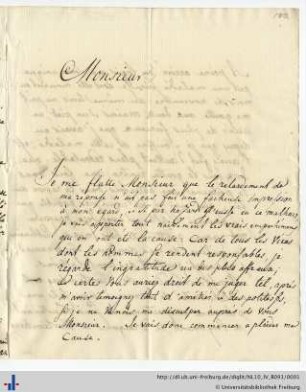 Monsieur
Je me flatte Monsieur que le retardement de
ma réponse n'ait pas fait une facheuse impression
à mon égard, et si par hazard j'eusse eu ce malheur
je vais apporter tout naivement les vrais empechemens
qui en ont été la cause: Car de tous les vices
dont les hommes se rendent responsables, je
regarde l'ingratitude un des plus affreux,
et certes vous auriez droit de me juger tel, après
m'avoir temoigné tant d'amitiés et des politesses,
si je ne venois me disculper auprès de vous
Monsieur. Je vais donc commencer a plaider ma
Cause.
http://dl.ub.uni-freiburg.de/diglit/NL10_IV_B091/0001
© Universitätsbibliothek Freiburg